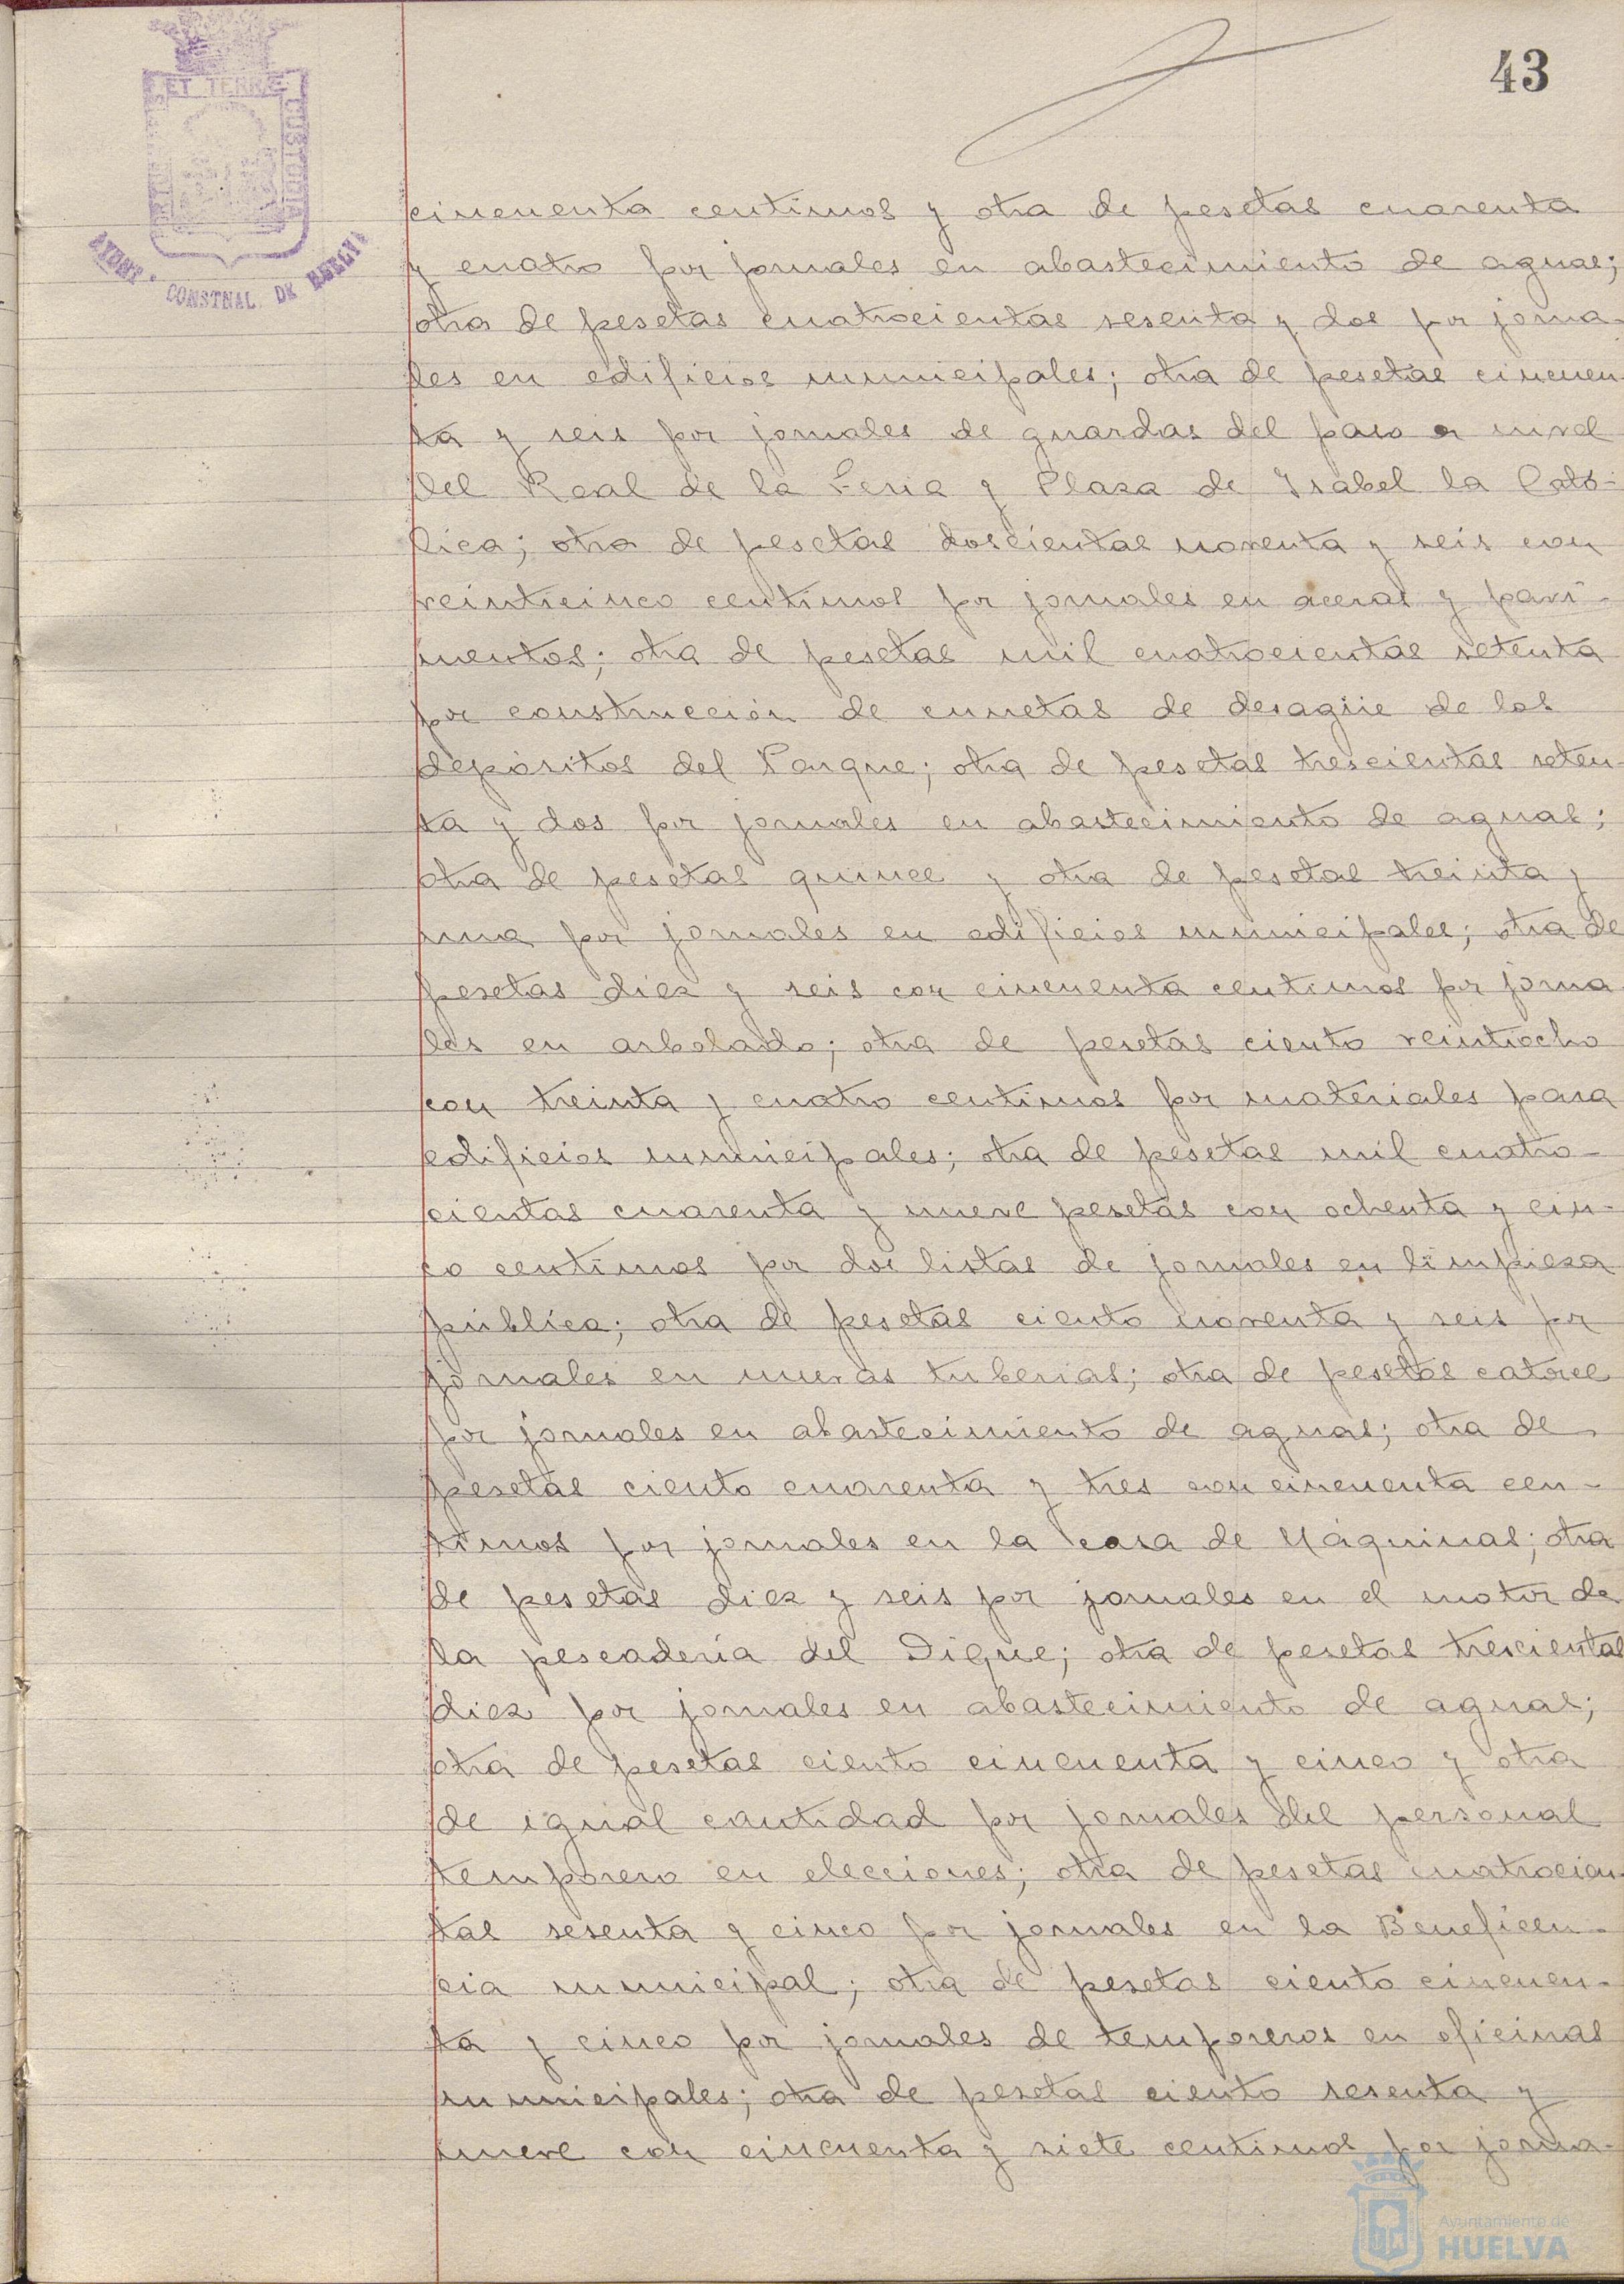 43
ET TERRÆ
CUSTODIA
AYUNT. CONSTNAL DE HUELVA
cincuenta centimos y otra de pesetas cuarenta
y cuatro por jornales en abastecimiento de aguas;
otra de pesetas cuatrocientas sesenta y dos por jorna-
les en edificios municipales; otra de pesetas cincuen-
ta y seis por jornales de guardas del paso a nivel
del Real de la Feria y Plaza de Isabel la Cató-
lica; otra de pesetas doscientas noventa y seis con
veinticinco centimos por jornales en aceras y pavi-
mentos; otra de pesetas mil cuatrocientas setenta
por construcción de cunetas de desagüe de los
depósitos del Parque; otra de pesetas trescientas seten-
ta y dos por jornales en abastecimiento de aguas;
otra de pesetas quince y otra de pesetas treinta y
una por jornales en edificios municipales; otra de
pesetas diez y seis con cincuenta centimos por jorna-
les en arbolado; otra de pesetas ciento veintiocho
con treinta y cuatro centimos por materiales para
edificios municipales; otra de pesetas mil cuatro-
cientas cuarenta y nueve pesetas con ochenta y cin-
co centimos por dos listas de jornales en limpieza
pública; otra de pesetas ciento noventa y seis por
jornales en nuevas tuberias; otra de pesetas catorce
por jornales en abastecimiento de aguas; otra de
pesetas ciento cuarenta y tres con cincuenta cen-
timos por jornales en la casa de Máquinas; otra
de pesetas diez y seis por jornales en el motor de
la pescadería del Dique; otra de pesetas trescientas
diez por jornales en abastecimiento de aguas;
otra de pesetas ciento cincuenta y cinco y otra
de igual cantidad por jornales del personal
temporero en elecciones; otra de pesetas cuatrocien-
tas sesenta y cinco por jornales en la Beneficen-
cia municipal; otra de pesetas ciento cincuen-
ta y cinco por jornales de temporeros en oficinas
municipales; otra de pesetas ciento sesenta y
nueve con cincuenta y siete centimos por jorna-
Ayuntamiento de
HUELVA